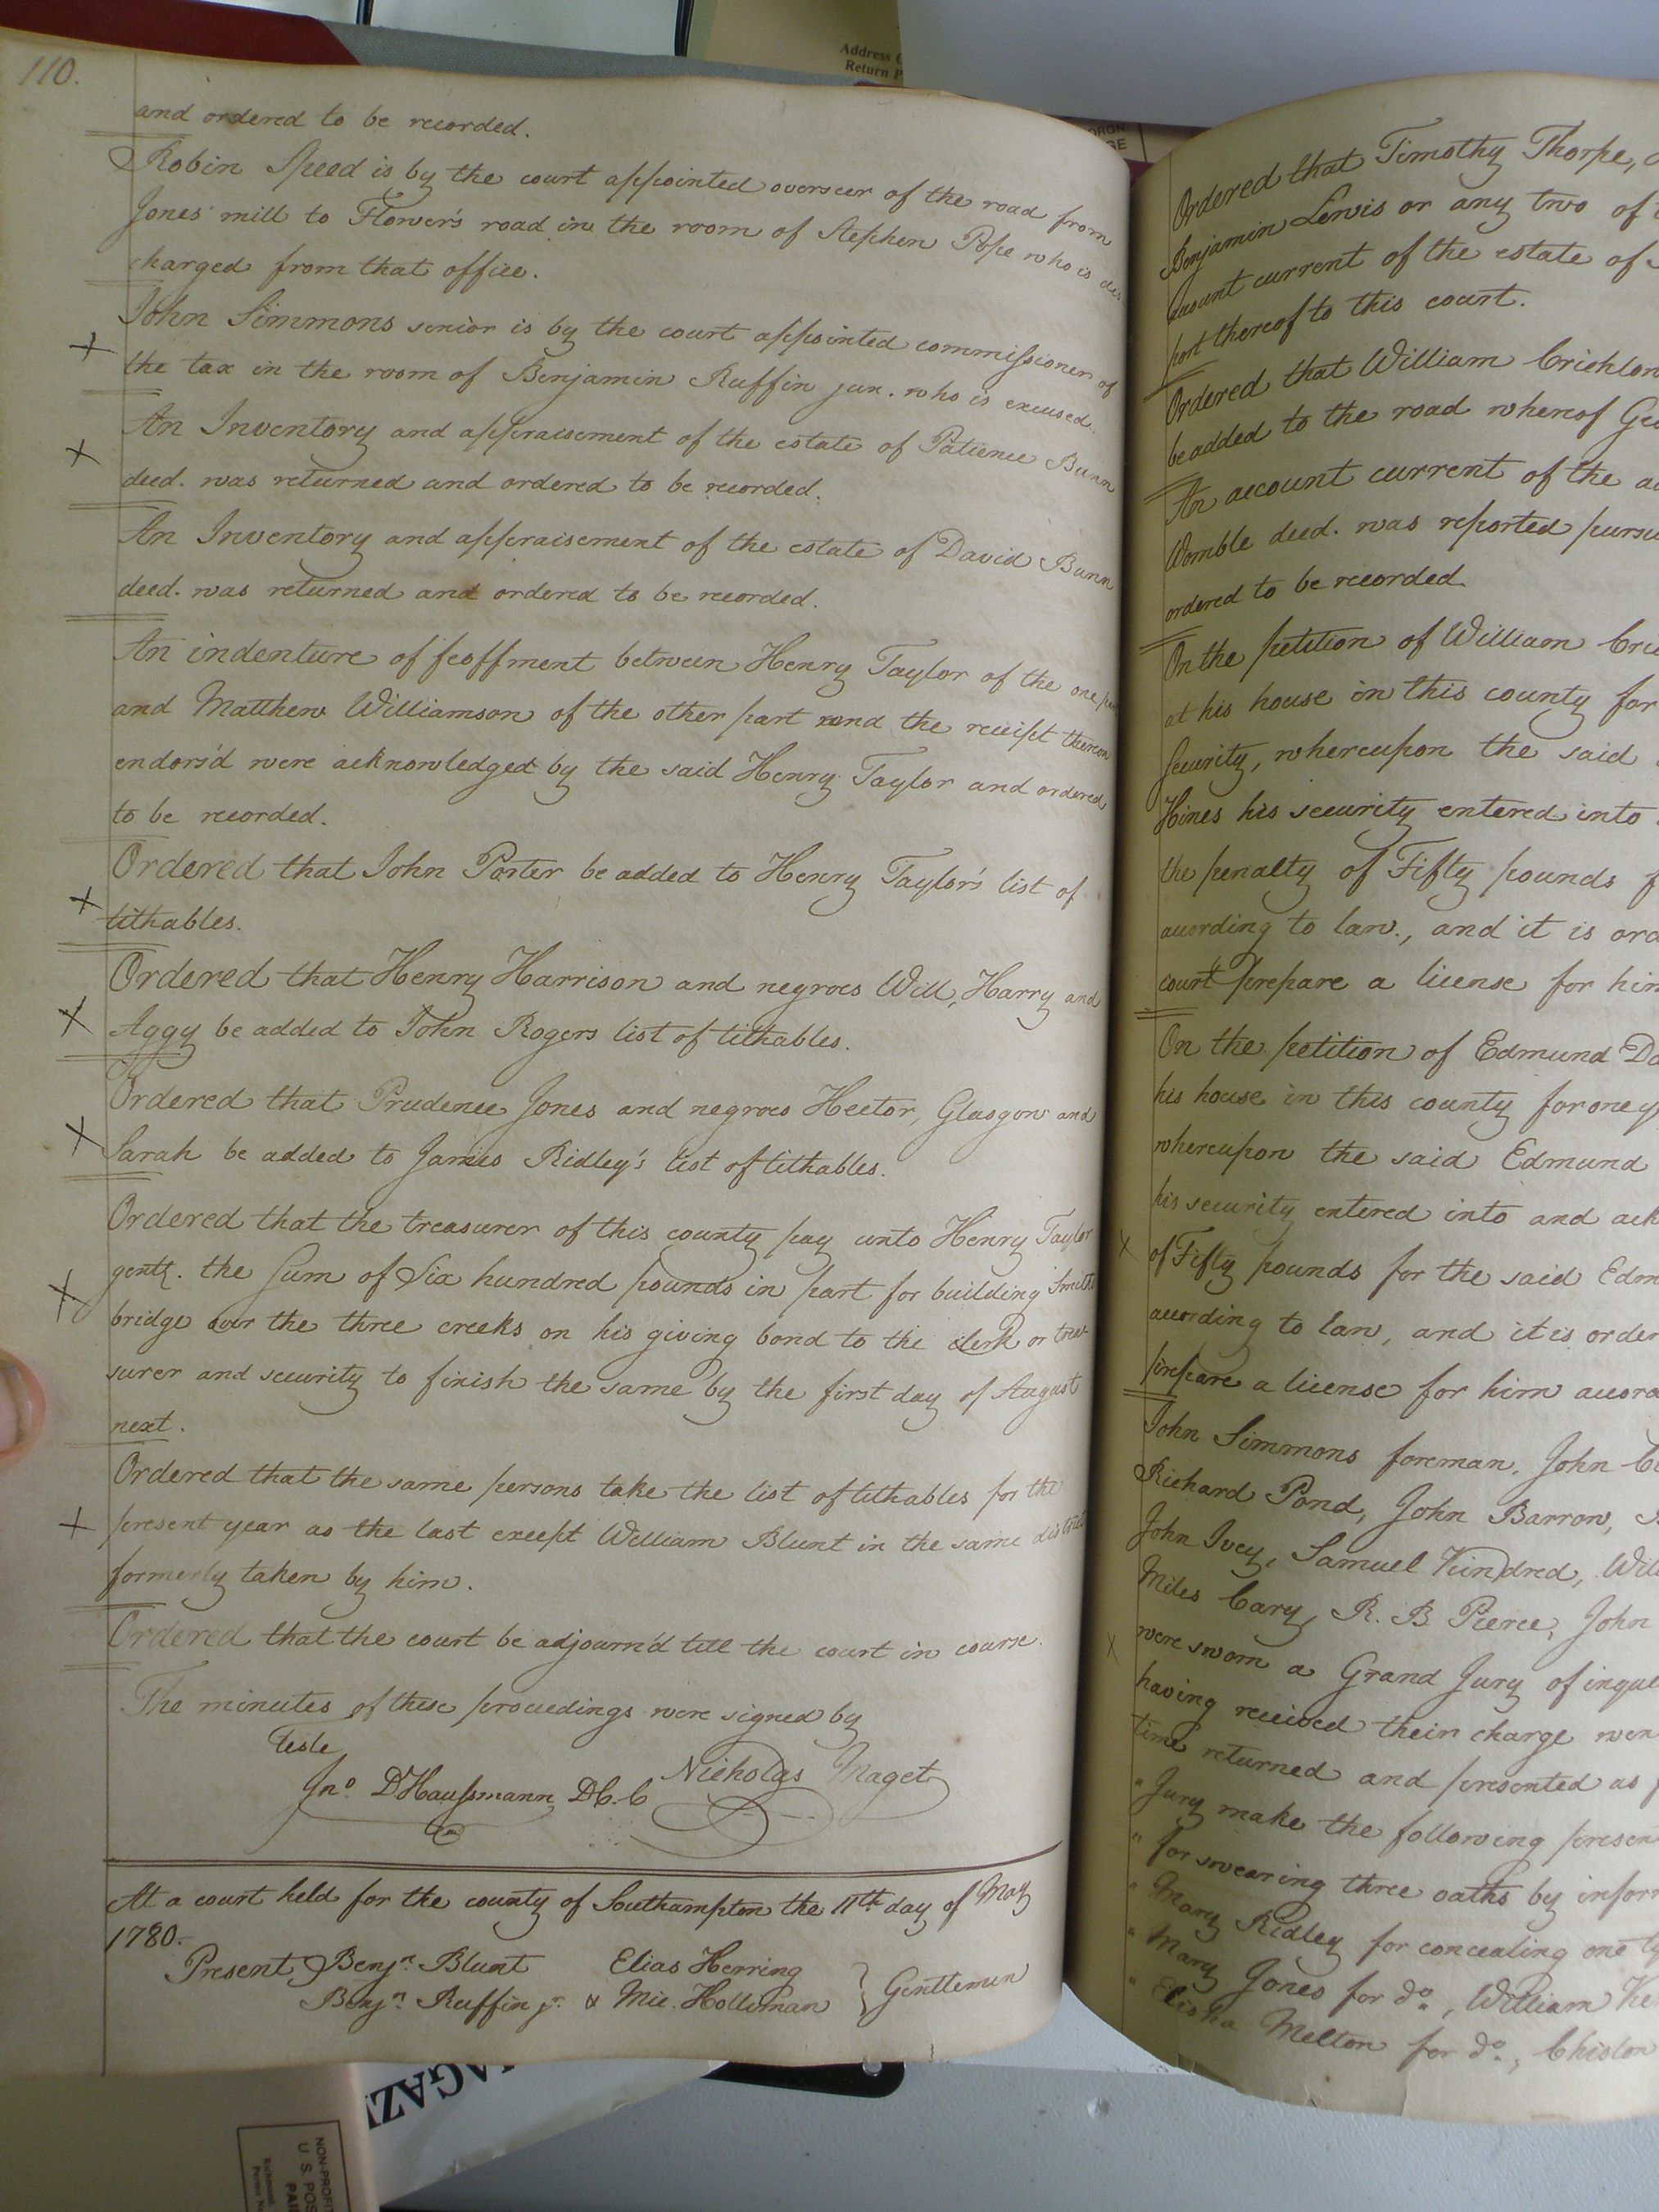 110.
and ordered to be recorded.
Robin Speed is by the court appointed overseer of the road from
Jones' mill to Flower's road in the room of Stephen Pope who is dis
charged from that office.
John Simmons senior is by the court appointed commissioner of
the tax in the room of Benjamin Ruffin jun. who is excused.
An Inventory and appraisement of the estate of Patience Bunn
deed. was returned and ordered to be recorded.
An Inventory and appraisement of the estate of David Bunn
deed. was returned and ordered to be recorded.
An indenture of feoffment between Henry Taylor of the one part
and Matthew Williamson of the other part and the receipt thereon
endors'd were acknowledged by the said Henry Taylor and ordered
to be recorded.
Ordered that John Porter be added to Henry Taylor's list of
tithables.
Ordered that Henry Harrison and negroes Will, Harry and
Aggy be added to John Rogers list of tithables.
Ordered that Prudence Jones and negroes Hector, Glasgow and
Sarah be added to James Ridley's list of tithables.
Ordered that the treasurer of this county pay unto Henry Taylor
gentl. the sum of Six hundred pounds in part for building Smith's
bridge over the three creeks on his giving bond to the clerk or trea-
surer and security to finish the same by the first day of August
next.
Ordered that the same persons take the list of tithables for the
present year as the last except William Blunt in the same district
formerly taken by him.
Ordered that the court be adjourn'd till the court in course.
The minutes of these proceedings were signed by
Teste
Jno. DHaussmann, D C. C
Nicholas Maget
At a court held for the county of Southampton the 11th day of May
1780.
Present Benjn. Blunt Elias Herring
Benjn. Ruffin jr. & Mic. Holliman } Gentlemen
Ordered that Timothy Thorpe,
Benjamin Lewis or any two of
account current of the estate of
port thereof to this court.
Ordered that William Crichlow
be added to the road whereof
An account current of the
Womble deed. was reported
ordered to be recorded
On the petition of William
at his house in this county for
security, whereupon the said
Hines his security entered into
the penalty of Fifty pounds
according to law., and it is
court prepare a license for him
On the petition of Edmund
his house in this county for one
whereupon the said Edmund
his security entered into and
of Fifty pounds for the said
according to law, and it is
prepare a license for him
John Simmons foreman, John
Richard Pond, John Barrow,
John Ivey, Samuel Kindred,
Miles Cary, R. B Pierce, John
were sworn a Grand Jury of
having received their charge
time returned and presented as
" Jury make the following
" for swearing three oaths by
" Mary Ridley for concealing one
" Mary Jones for do., William
" Elisha Melton for do.,
Address
Return
NON-PROFIT
U. S. POS
PAI